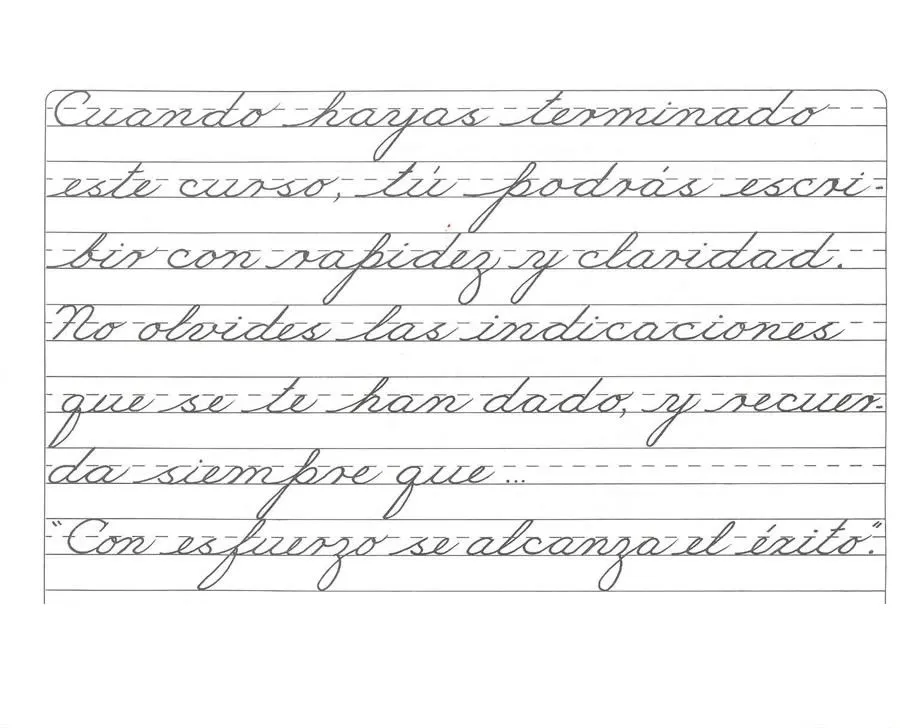 Cuando hayas terminado
este curso, tú podrás escri-
bir con rapidez y claridad.
No olvides las indicaciones
que se te han dado, y recuer-
da siempre que...
"Con esfuerzo se alcanza el éxito".